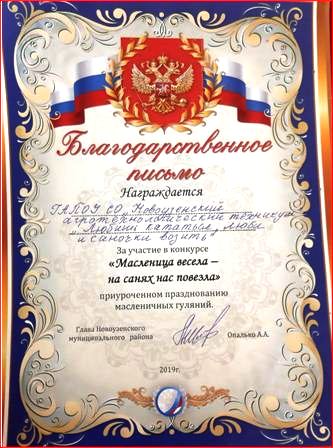 Благодарственное
письмо
Награждается
ГАПОУ СО „Новоузенский
агротехнологический техникум"
„Любишь кататься, люби
и саночки возить"
За участие в конкурсе
«Масленица весела –
на санях нас повезла»
приуроченном празднованию
масленичных гуляний.
Глава Новоузенского
муниципального района
Опалько А.А.
2019г.